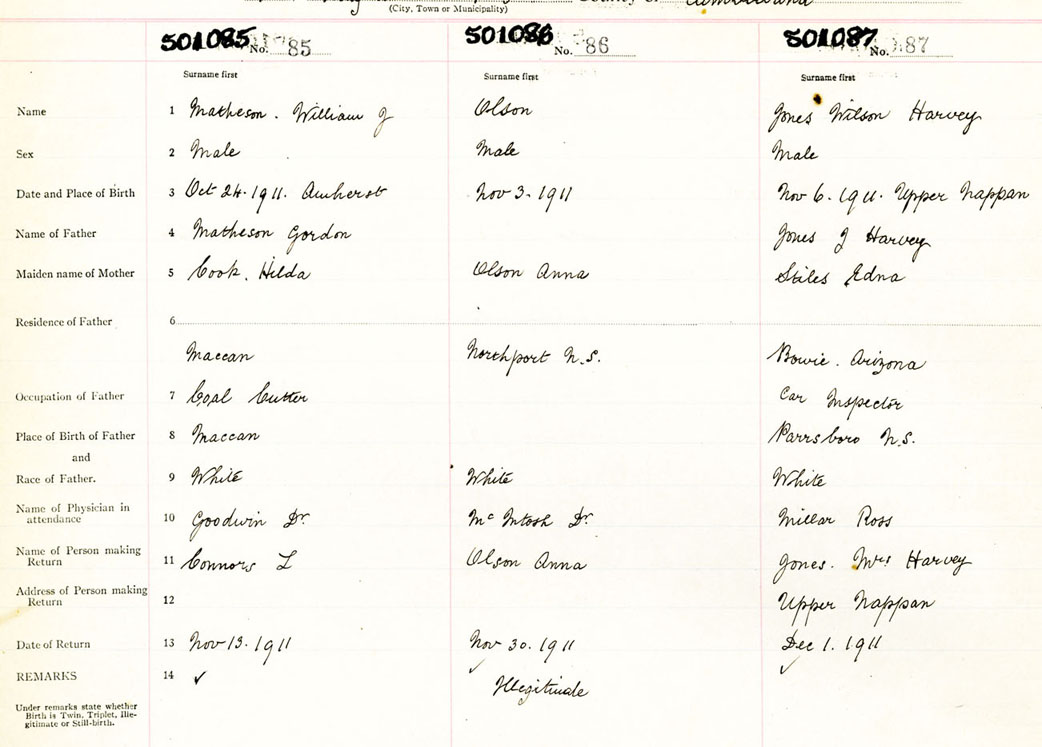 (City, Town or Municipality)
501085 No. 85 501086 No. 86 501087 No. 87
Surname first Surname first Surname first
Name 1 Matheson. William J Olson Jones Wilson Harvey
Sex 2 Male Male Male
Date and Place of Birth 3 Oct 24. 1911. Amherst Nov 3. 1911 Nov 6. 1911. Upper Nappan
Name of Father 4 Matheson Gordon Jones J Harvey
Maiden name of Mother 5 Cook. Hilda Olson Anna Stiles Edna
Residence of Father 6
Maccan Northport N.S. Bowie. Arizona
Occupation of Father 7 Coal Cutter Car Inspector
Place of Birth of Father 8 Maccan Parrsboro N.S.
and
Race of Father. 9 White White White
Name of Physician in
attendance 10 Goodwin Dr. McIntosh Dr. Millar Ross
Name of Person making
Return 11 Connors L Olson Anna Jones. Mrs Harvey
Address of Person making
Return 12 Upper Nappan
Date of Return 13 Nov 13. 1911 Nov 30. 1911 Dec 1. 1911
REMARKS 14 ✓ ✓ ✓
Illegitimate
Under remarks state whether
Birth is Twin, Triplet, Ille-
gitimate or Still-birth.